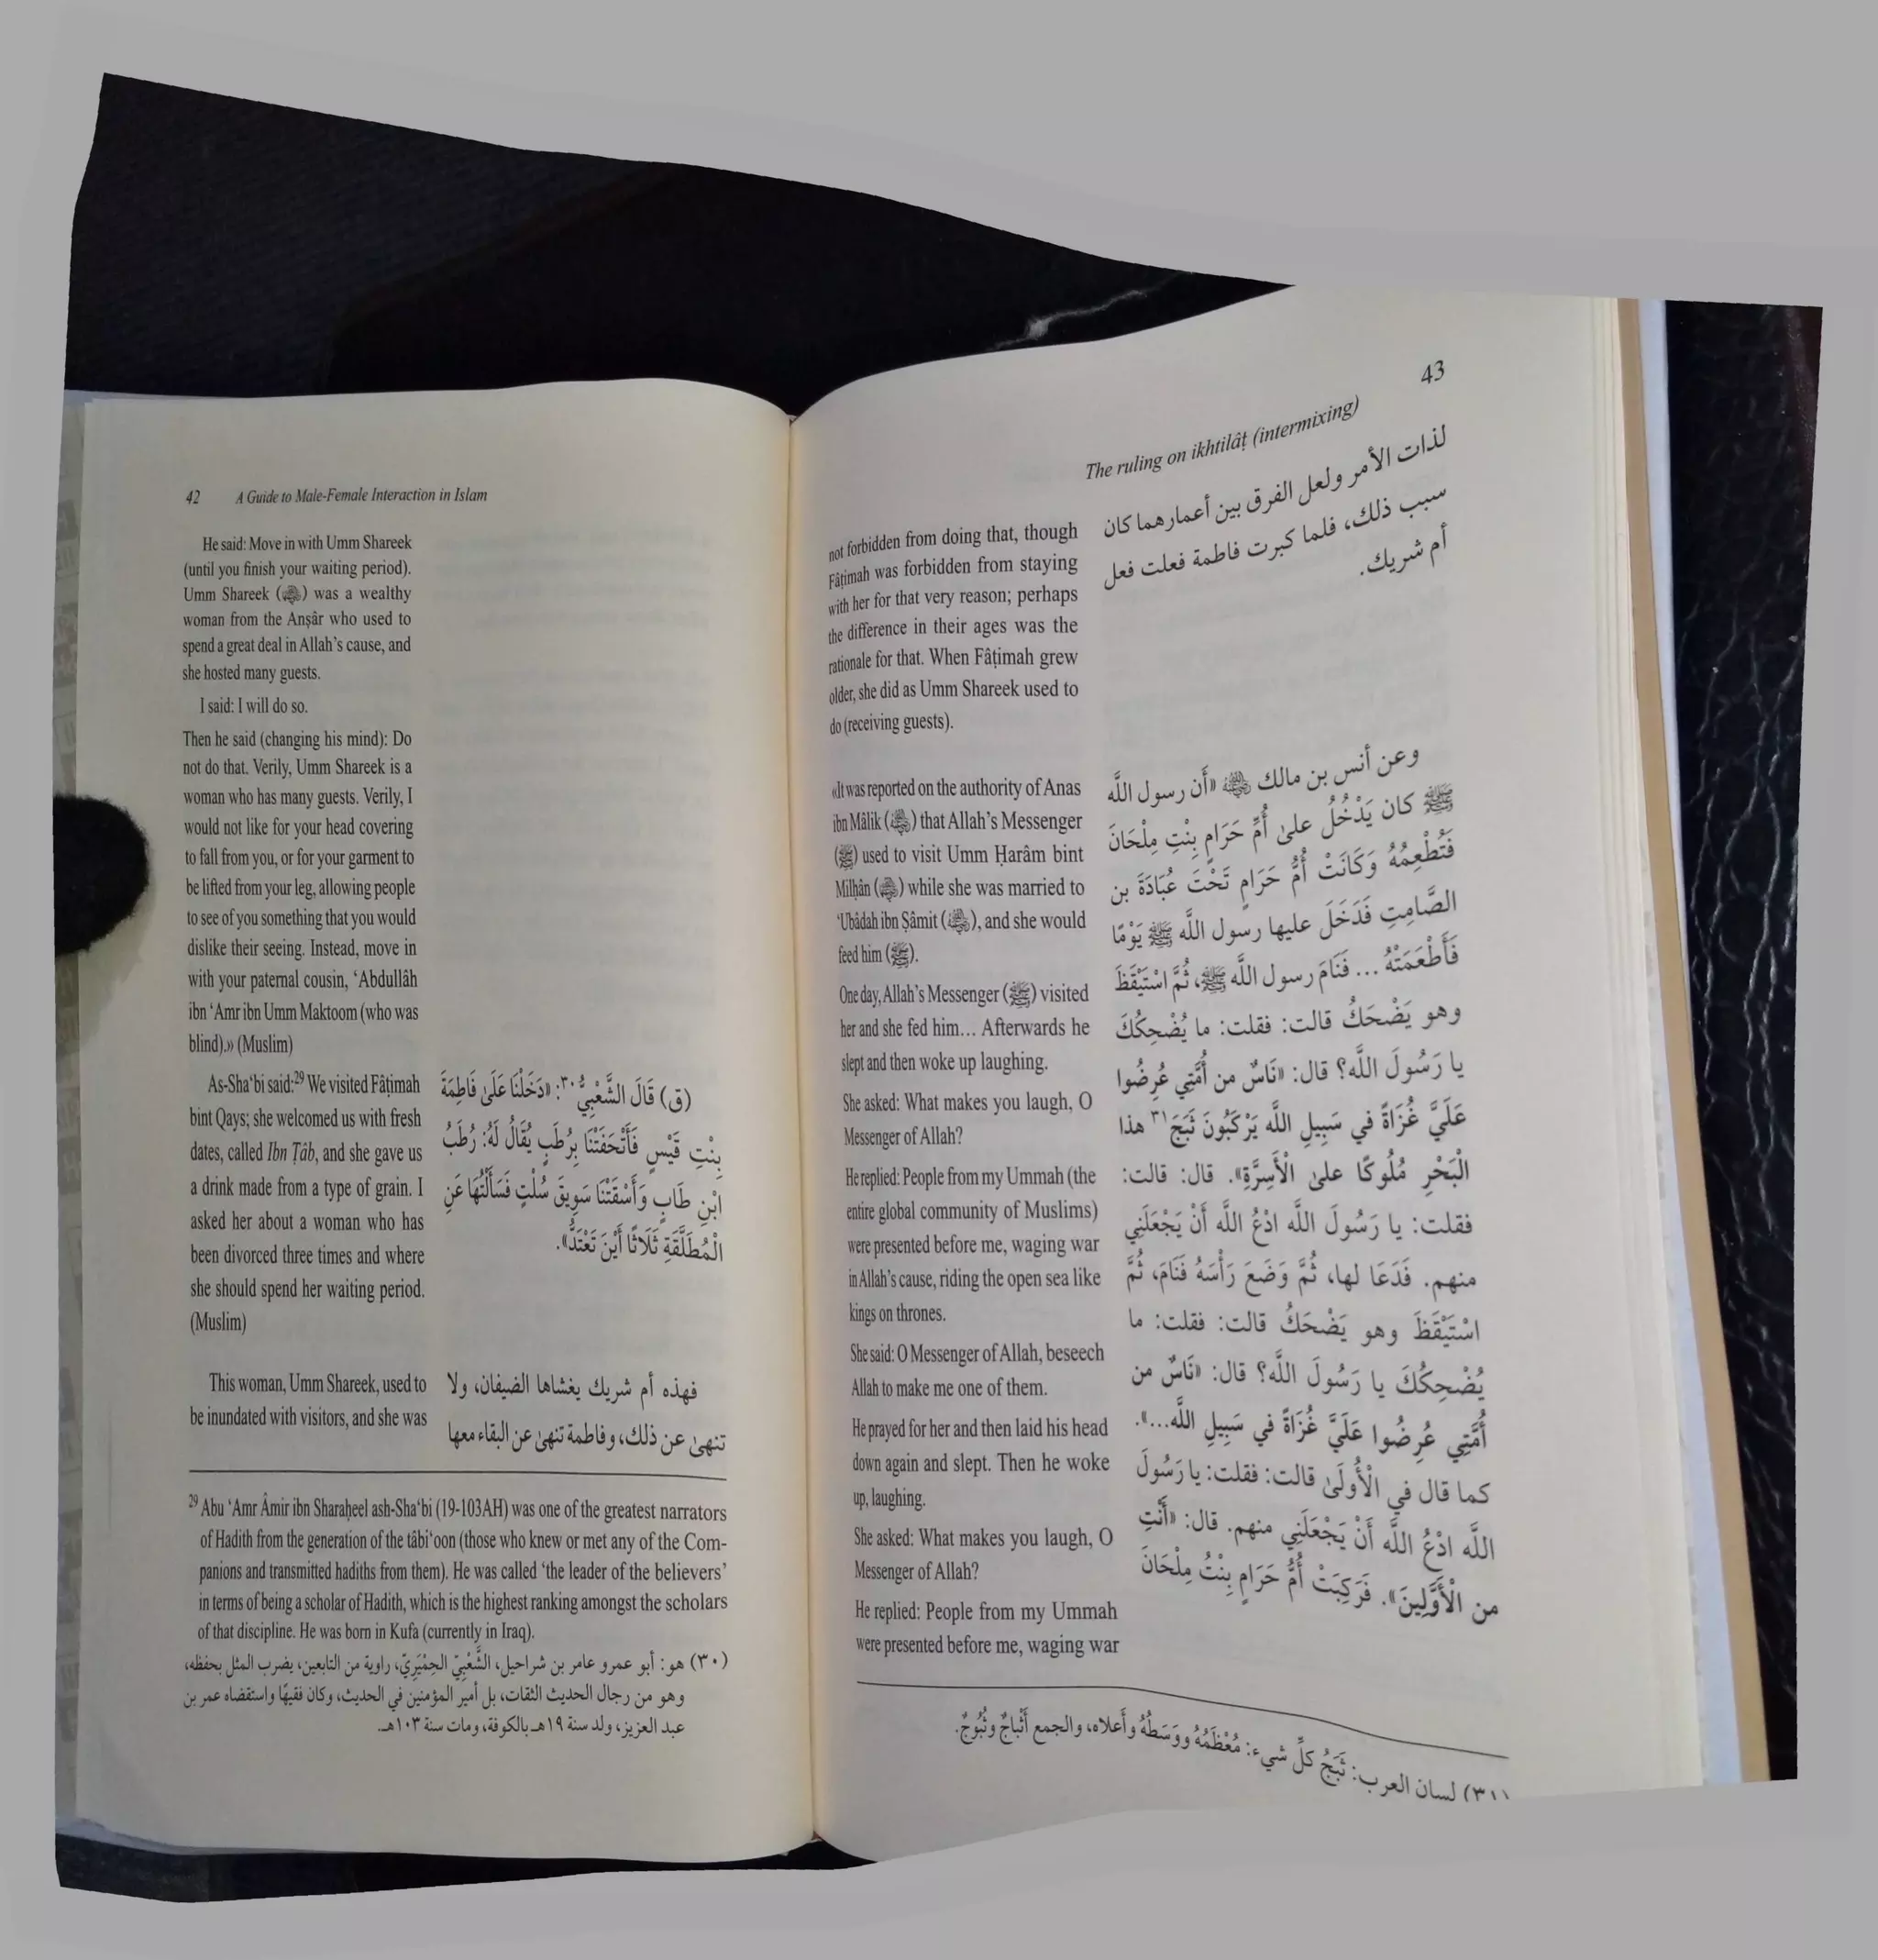 42 A Guide to Male-Female Interaction in Islam
He said: Move in with Umm Shareek
(until you finish your waiting period).
Umm Shareek (رضي الله عنها) was a wealthy
woman from the Anṣâr who used to
spend a great deal in Allah's cause, and
she hosted many guests.
I said: I will do so.
Then he said (changing his mind): Do
not do that. Verily, Umm Shareek is a
woman who has many guests. Verily, I
would not like for your head covering
to fall from you, or for your garment to
be lifted from your leg, allowing people
to see of you something that you would
dislike their seeing. Instead, move in
with your paternal cousin, ‘Abdullâh
ibn ‘Amr ibn Umm Maktoom (who was
blind).» (Muslim)
As-Sha‘bi said:29 We visited Fâṭimah
bint Qays; she welcomed us with fresh
dates, called Ibn Ṭâb, and she gave us
a drink made from a type of grain. I
asked her about a woman who has
been divorced three times and where
she should spend her waiting period.
(Muslim)
(ق) قَالَ الشَّعْبِيُّ٣٠: «دَخَلْنَا عَلَىٰ فَاطِمَةَ
بِنْتِ قَيْسٍ فَأَتْحَفَتْنَا بِرُطَبٍ يُقَالُ لَهُ: رُطَبُ
ابْنِ طَابٍ وَأَسْقَتْنَا سَوِيقَ سُلْتٍ فَسَأَلْتُهَا عَنِ
الْمُطَلَّقَةِ ثَلَاثًا أَيْنَ تَعْتَدُّ».
This woman, Umm Shareek, used to
be inundated with visitors, and she was
فهذه أم شريك يغشاها الضيفان، ولا
تنهىٰ عن ذلك، وفاطمة تنهىٰ عن البقاء معها
29 Abu ‘Amr Âmir ibn Sharaḥeel ash-Sha‘bi (19-103AH) was one of the greatest narrators
of Hadith from the generation of the tâbi‘oon (those who knew or met any of the Com-
panions and transmitted hadiths from them). He was called ‘the leader of the believers’
in terms of being a scholar of Hadith, which is the highest ranking amongst the scholars
of that discipline. He was born in Kufa (currently in Iraq).
(٣٠) هو: أبو عمرو عامر بن شراحيل، الشَّعْبِيّ الحِمْيَرِيّ، راوية من التابعين، يضرب المثل بحفظه،
وهو من رجال الحديث الثقات، بل أمير المؤمنين في الحديث، وكان فقيهًا واستقضاه عمر بن
عبد العزيز، ولد سنة ١٩هـ بالكوفة، ومات سنة ١٠٣هـ.
43
The ruling on ikhtilâṭ (intermixing)
not forbidden from doing that, though
Fâṭimah was forbidden from staying
with her for that very reason; perhaps
the difference in their ages was the
rationale for that. When Fâṭimah grew
older, she did as Umm Shareek used to
do (receiving guests).
لذات الأمر ولعل الفرق بين أعمارهما كان
سبب ذلك، فلما كبرت فاطمة فعلت فعل
أم شريك.
«It was reported on the authority of Anas
ibn Mâlik (رضي الله عنه) that Allah's Messenger
(ﷺ) used to visit Umm Ḥarâm bint
Milḥân (رضي الله عنها) while she was married to
‘Ubâdah ibn Ṣâmit (رضي الله عنه), and she would
feed him (ﷺ).
One day, Allah's Messenger (ﷺ) visited
her and she fed him... Afterwards he
slept and then woke up laughing.
She asked: What makes you laugh, O
Messenger of Allah?
He replied: People from my Ummah (the
entire global community of Muslims)
were presented before me, waging war
in Allah's cause, riding the open sea like
kings on thrones.
She said: O Messenger of Allah, beseech
Allah to make me one of them.
He prayed for her and then laid his head
down again and slept. Then he woke
up, laughing.
She asked: What makes you laugh, O
Messenger of Allah?
He replied: People from my Ummah
were presented before me, waging war
وعن أنس بن مالك رضي الله عنه «أَن رسول اللَّه
ﷺ كان يَدْخُلُ علىٰ أُمِّ حَرَامٍ بِنْتِ مِلْحَانَ
فَتُطْعِمُهُ وَكَانَتْ أُمُّ حَرَامٍ تَحْتَ عُبَادَةَ بن
الصَّامِتِ فَدَخَلَ عليها رسول اللَّه ﷺ يَوْمًا
فَأَطْعَمَتْهُ ... فَنَامَ رسول اللَّه ﷺ، ثُمَّ اسْتَيْقَظَ
وهو يَضْحَكُ قالت: فقلت: ما يُضْحِكُكَ
يا رَسُولَ اللَّه؟ قال: «نَاسٌ من أُمَّتِي عُرِضُوا
عَلَيَّ غُزَاةً في سَبِيلِ اللَّه يَرْكَبُونَ ثَبَجَ٣١ هذا
الْبَحْرِ مُلُوكًا علىٰ الْأَسِرَّةِ». قال: قالت:
فقلت: يا رَسُولَ اللَّه ادْعُ اللَّه أَنْ يَجْعَلَنِي
منهم. فَدَعَا لها، ثُمَّ وَضَعَ رَأْسَهُ فَنَامَ، ثُمَّ
اسْتَيْقَظَ وهو يَضْحَكُ قالت: فقلت: ما
يُضْحِكُكَ يا رَسُولَ اللَّه؟ قال: «نَاسٌ من
أُمَّتِي عُرِضُوا عَلَيَّ غُزَاةً في سَبِيلِ اللَّه...».
كما قال في الْأُولَىٰ قالت: فقلت: يا رَسُولَ
اللَّه ادْعُ اللَّه أَنْ يَجْعَلَنِي منهم. قال: «أَنْتِ
من الْأَوَّلِينَ». فَرَكِبَتْ أُمُّ حَرَامٍ بِنْتُ مِلْحَانَ
(٣١) لسان العرب: ثَبَجُ كلِّ شيء: مُعْظَمُهُ ووَسَطُهُ وأَعلاه، والجمع أَثْباجٌ وثُبُوجٌ.